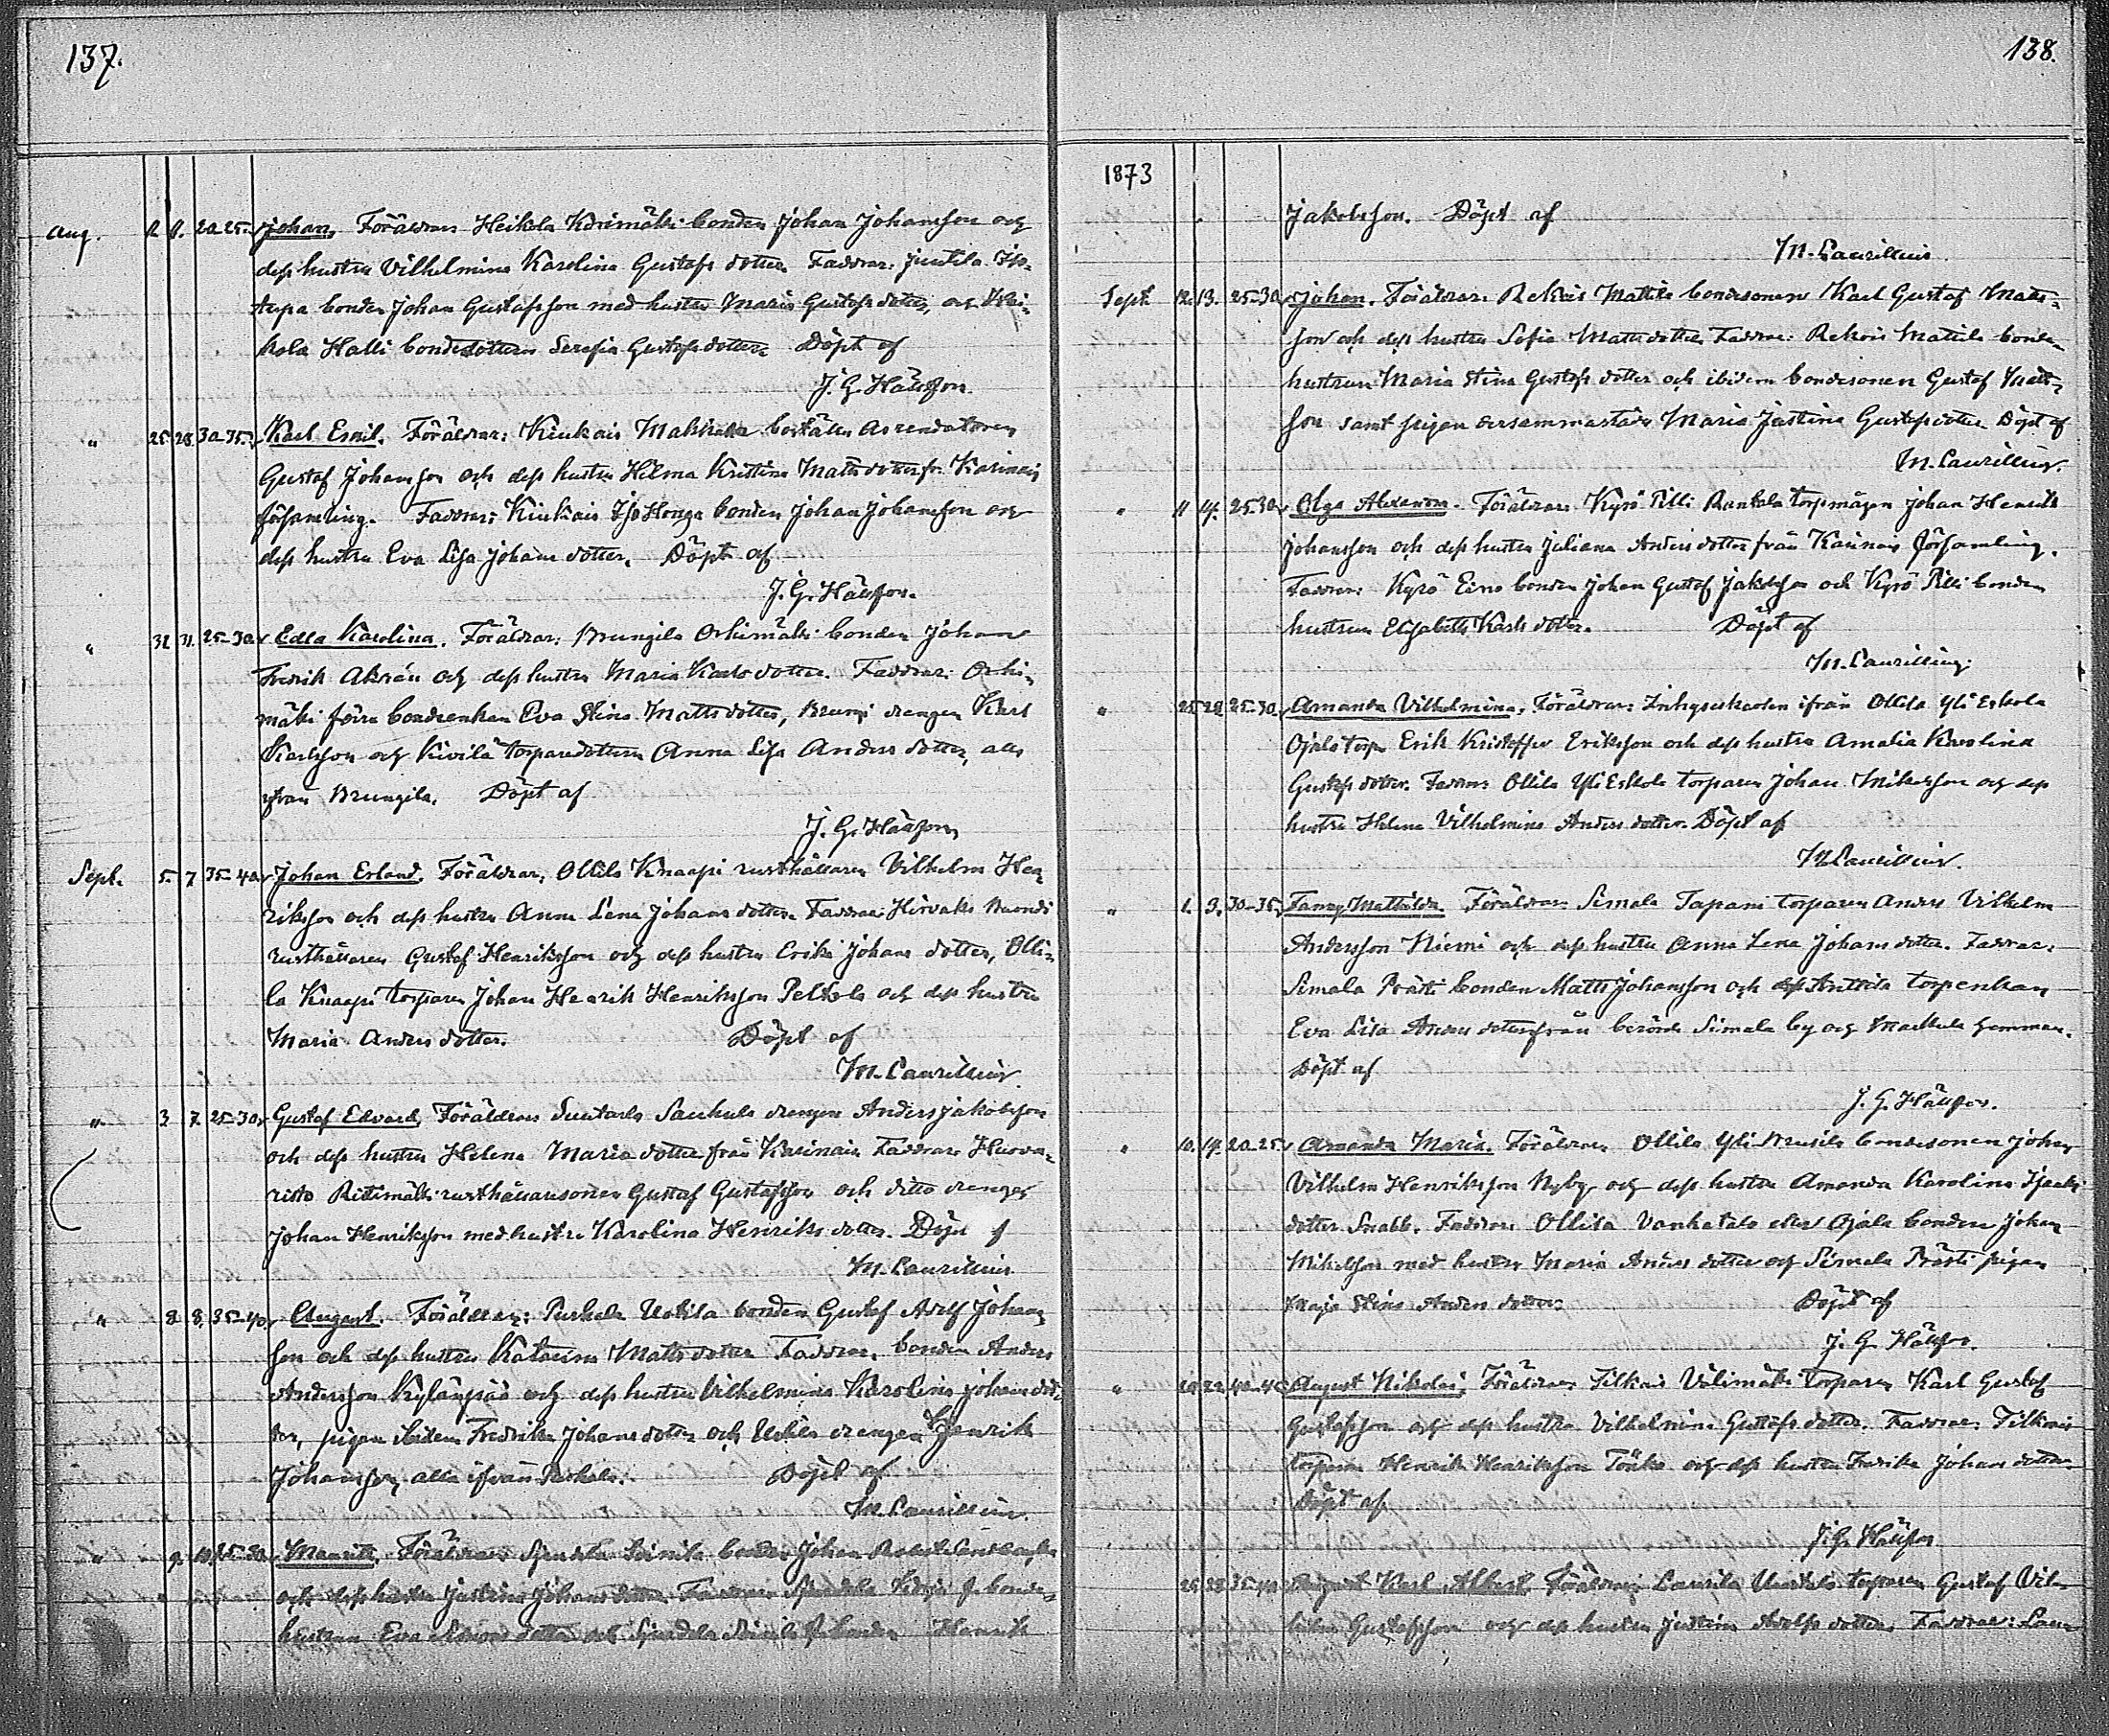 137.
Aug. 20-25. Johan. Föräldrar Heikola bonden Johan Johansson och
dess hustru Vilhelmina Karolina Gustafs dotter. Faddrar: Juntila
bonden Johan Gustafsson med hustru Maria Gustafs dotter, och Hei-
kola Halli bondedottern Serafia Gustafs dotter Döpt af
J. G. Hällfors.
" 25. 28. 30-35. Karl Emil. Föräldrar: Kiukais boställs arrendatoren
Gustaf Johansson och dess hustru Hilma Kristina Matts dotter fr. Karinais
församling. Faddrar: Kiukais Iso Honga bonden Johan Johansson och
dess hustru Eva Lisa Johans dotter. Döpt af
J. G. Hällfors.
" 31. 31. 25-30. Edla Karolina. Föräldrar: Brungila Orhimäki bonden Johan
Fredrik och dess hustru Maria Karls dotter. Faddrar: Orhi-
mäki förra bondenkan Eva Stina Matts dotter, drengen Karl
Karlsson och Kivilä torparedottern Anna Lisa Anders dotter, alla
ifrån Brungila. Döpt af
J. G. Hällfors
Sept. 5. 7. 35-40. Johan Erland. Föräldrar: Ollila Knaapi rusthållaren Vilhelm Hen-
riksson och dess hustru Anna Lena Johans dotter. Faddrar: Hirvaks
rusthållaren Gustaf Henriksson och dess hustru Erika Johans dotter, Olli-
la Knaapi torparen Johan Henrik Henriksson Peltola och dess hustru
Maria Anders dotter. Döpt af
M. Laurillius.
" 3. 7. 25-30. Gustaf Edvard. Föräldrar drengen Anders Jakobsson
och dess hustru Helena Maria dotter från Karinais. Faddrar: Huova-
risto Rietimäki rusthållaresonen Gustaf Gustafsson och ditto drengen
Johan Henriksson med hustru Karolina Henriks dotter. Döpt af
M. Laurillius
" 8. 8. 35-40. August. Föräldrar: Uotila bonden Gustaf Adolf Johans-
son och dess hustru Katarina Matts dotter Faddrar: bonden Anders
Andersson Kylänpää och dess hustru Vilhelmina Karolina Johans dot-
ter, pigan ibidem Fredrika Johans dotter och Uotila drengen Henrik
Johansson, alla ifrån Döpt af
M. Laurillius.
" 9. 10. 25-30. Mauritz. Föräldrar bonden Johan
och dess hustru Justina Johans dotter. Faddrar: bonde-
hustrun Eva dotter och bonden Henrik
138.
1873
Jakobsson. Döpt af
M. Laurillius.
Sept. 12. 13. 25-30. Johan. Föräldrar: Rekois Mattila bondesonen Karl Gustaf Matts-
son och dess hustru Sofia Matts dotter Faddrar: Rekois Mattila bonde-
hustrun Maria Stina Gustafs dotter och ibidem bondesonen Gustaf Matts-
son samt pigan dersammastädes Maria Justina Gustafs dotter Döpt af
M. Laurillius.
" 11. 14. 25-30. Olga Alexandra. Föräldrar: Kyrö Pilli torpmågen Johan Henrik
Johansson och dess hustru Juliana Anders dotter från Karinais församling.
Faddrar: Kyrö Eino bonden Johan Gustaf Jakobsson och Kyrö Pilli bonden
hustrun Elisabeth Karls dotter. Döpt af
M. Laurillius.
" 25. 28. 25-30. Amanda Vilhelmina. Föräldrar: Inhyseskarlen ifrån Ollila Yli Eskola
Ojala torp Erik Kristoffer Eriksson och dess hustru Amalia Karolina
Gustafs dotter. Faddrar: Ollila Yli Eskola torparen Johan Mikelsson och dess
hustru Helena Vilhelmina Anders dotter. Döpt af
M. Laurillius.
" 1. 3. 30-35. Fanny Mathilda. Föräldrar: Simala Tapani torparen Anders Vilhelm
Andersson Niemi och dess hustru Anna Lena Johans dotter. Faddrar:
Simala Prästi bonden Matts Johansson och torpenkan
Eva Lisa Anders dotter från berörde Simala by och hemman.
Döpt af
J. G. Hällfors.
" 10. 14. 20-25. Amanda Maria. Föräldrar: Ollila Yli bondesonen Johan
Vilhelm Henriksson Nyby och dess hustru Amanda Karolina Isaks
dotter Snabb. Faddrar: Ollila Vanhatalo eller Ojala bonden Johan
Mikelsson med hustru Maria Anders dotter och Simala Prästi pigan
Maja Stina Anders dotter. Döpt af
J. G. Hällfors.
" 40-45. August Nikolai. Föräldrar: Tilkais Välimäki torparen Karl Gustaf
Gustafsson och dess hustru Vilhelmina Gustafs dotter. Faddrar: Tilkais
torparen Henrik Henriksson och dess hustru Fredrika Johans dotter.
Döpt af
J. G. Hällfors
35-40. August Karl Albert. Föräldrar: Laurila torparen Gustaf Vil-
helm Gustafsson och dess hustru Justina Adolfs dotter. Faddrar: Lau-